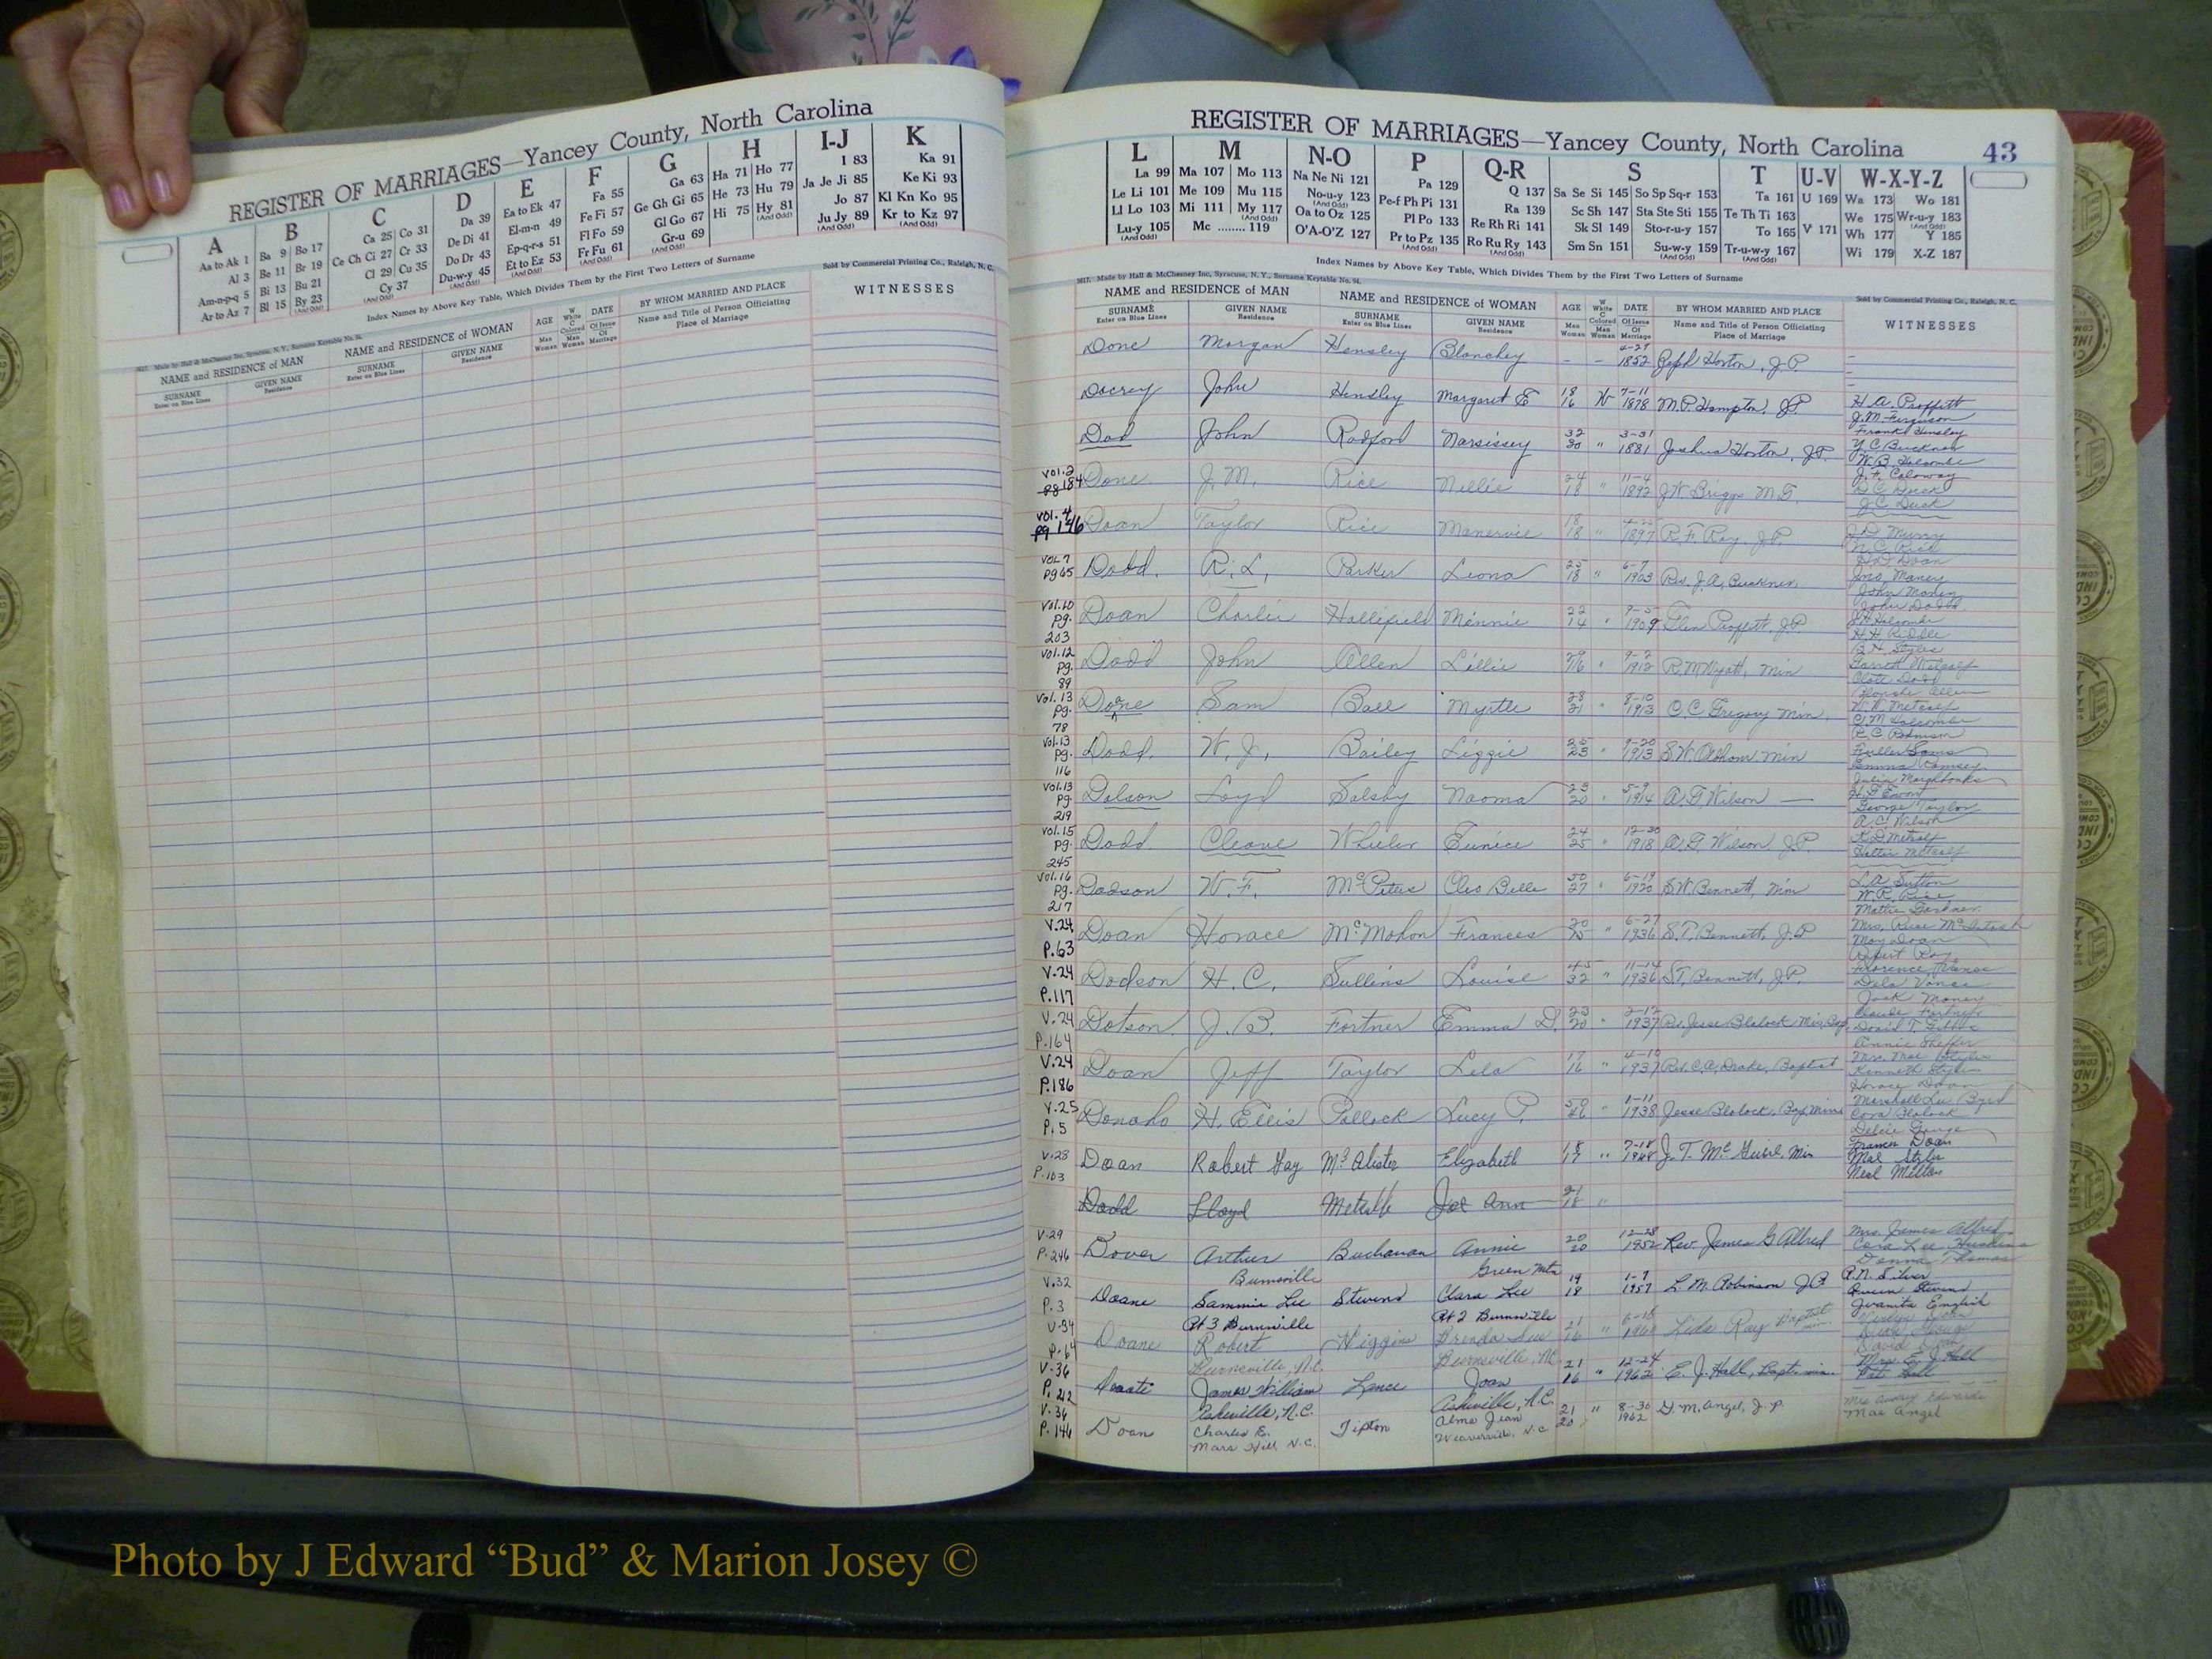 REGISTER OF MARRIAGES—Yancey County, North Carolina
A B C D E F G H I-J K
Aa to Ak 1 Ba 9 Bo 17 Ca 25 Co 31 Da 39 Ea to Ek 47 Fa 55 Ga 63 Ha 71 Ho 77 I 83 Ka 91
Al 3 Be 11 Br 19 Ce Ch Ci 27 Cr 33 De Di 41 El-m-n 49 Fe Fi 57 Ge Gh Gi 65 He 73 Hu 79 Ja Je Ji 85 Ke Ki 93
Am-n-p-q 5 Bi 13 Bu 21 Cl 29 Cu 35 Do Dr 43 Ep-q-r-s 51 Fl Fo 59 Gl Go 67 Hi 75 Hy 81 (And Odd) Jo 87 Kl Kn Ko 95
Ar to Az 7 Bl 15 By 23 (And Odd) Cy 37 (And Odd) Du-w-y 45 (And Odd) Et to Ez 53 (And Odd) Fr Fu 61 (And Odd) Gr-u 69 (And Odd) Ju Jy 89 (And Odd) Kr to Kz 97 (And Odd)
Index Names by Above Key Table, Which Divides Them by the First Two Letters of Surname
Made by Hall & McChesney Inc, Syracuse, N. Y., Surname Keytable No. 94. Sold by Commercial Printing Co., Raleigh, N. C.
NAME and RESIDENCE of MAN NAME and RESIDENCE of WOMAN AGE W White C Colored DATE Of Issue Of Marriage BY WHOM MARRIED AND PLACE WITNESSES
SURNAME Enter on Blue Lines GIVEN NAME Residence SURNAME Enter on Blue Lines GIVEN NAME Residence Man Woman Man Woman Name and Title of Person Officiating Place of Marriage
REGISTER OF MARRIAGES—Yancey County, North Carolina 43
L M N-O P Q-R S T U-V W-X-Y-Z
La 99 Ma 107 Mo 113 Na Ne Ni 121 Pa 129 Q 137 Sa Se Si 145 So Sp Sq-r 153 Ta 161 U 169 Wa 173 Wo 181
Le Li 101 Me 109 Mu 115 No-u-y 123 (And Odd) Pe-f Ph Pi 131 Ra 139 Sc Sh 147 Sta Ste Sti 155 Te Th Ti 163 We 175 Wr-u-y 183 (And Odd)
Ll Lo 103 Mi 111 My 117 (And Odd) Oa to Oz 125 Pl Po 133 Re Rh Ri 141 Sk Sl 149 Sto-r-u-y 157 To 165 V 171 Wh 177 Y 185
Lu-y 105 (And Odd) Mc ........ 119 O'A-O'Z 127 Pr to Pz 135 (And Odd) Ro Ru Ry 143 Sm Sn 151 Su-w-y 159 (And Odd) Tr-u-w-y 167 (And Odd) Wi 179 X-Z 187
Index Names by Above Key Table, Which Divides Them by the First Two Letters of Surname
Made by Hall & McChesney Inc, Syracuse, N. Y., Surname Keytable No. 94. Sold by Commercial Printing Co., Raleigh, N. C.
NAME and RESIDENCE of MAN NAME and RESIDENCE of WOMAN AGE W White C Colored DATE Of Issue Of Marriage BY WHOM MARRIED AND PLACE WITNESSES
SURNAME Enter on Blue Lines GIVEN NAME Residence SURNAME Enter on Blue Lines GIVEN NAME Residence Man Woman Man Woman Name and Title of Person Officiating Place of Marriage
Done Morgan Hensley Blanchey - - 4-29 1852 Horton, J.P.
Docrey John Hensley Margaret E 18 16 W 7-11 1878 M.P. Hampton, J.P. H. A. Proffitt J. M. Ferguson Frank Hensley
Dod John Radford Narsissey 32 30 " 3-31 1881 Joshua Horton, J.P. Y. C. Buckner W. B. Holcombe J. F. Caloway
Vol. 2 Pg 184 Done J. M. Rice Nellie 24 18 " 11-4 1892 J W Briggs M.G. D C Duck J. C. Duck
Vol. 4 Pg 146 Doan Taylor Rice Manervie 18 18 " 1897 R. F. Ray, J.P.
Vol 7 Pg 65 Dodd R. L. Parker Leona 25 18 " 6-7 1903 Rev. J. A. Buckner Jno. Maney John Maney John Dodd
Vol. 10 Pg. 203 Doan Charlie Hallifield Minnie 22 14 " 9-5 1909 Glen Proffitt, J.P. Holcombe H. H. Riddle
Vol. 12 Pg. 89 Dodd John Allen Lillie 16 " 1912 R M Wyatt, Min Garrett Metcalf Dodd
Vol. 13 Pg. 78 Doane Sam Ball Myrtle 28 21 " 8-10 1913 O. C. Gregory Min. W. W. Metcalf Holcombe R. C. Robinson
Vol. 13 Pg. 116 Dodd W. J. Bailey Liggie 25 23 " 9-20 1913 S. W. Min Fuller Sams Emma Ramsey
Vol. 13 Pg. 219 Dolson Loyd Salsby Naoma 23 20 " 5-9 1914 A G Wilson — George Taylor A. C. Wilson
Vol. 15 Pg. 245 Dodd Cleave Wheeler Eunice 24 25 " 12-30 1918 A. G. Wilson J.P. Metcalf Hattie Metcalf
Vol. 16 Pg. 217 Dodson W. F. McPeters Cleo Belle 50 27 " 6-19 1920 S W. Bennett, Min L. A. Sutton W. R. Rice Mattie
V. 24 P. 63 Doan Horace McMahon Frances 20 " 6-27 1936 S. T. Bennett, J.P Mrs. McIntosh Doan Robert Ray
V. 24 P. 117 Dodson H. C. Sullins Louise 45 32 " 11-14 1936 S.T. Bennett, J.P. Florence Vance Vance Jack Maney
V. 24 P. 164 Dotson J. B. Fortner Emma D. 23 20 " 2-12 1937 Rev. Jesse Blalock David T. Annie
V. 24 P. 186 Doan Jeff Taylor Lela 17 16 " 4-10 1937 Rev. C. A. Drake, Baptist Mrs. Mae Styles Kenneth Styles Horace Doan
V. 25 P. 5 Donaho H. Ellis Pollock Lucy P. 50 46 " 1-11 1938 Jesse Blalock, Marshall Lee Byrd Cora Blalock
V. 28 P. 103 Doan Robert Gay McAlister Elizabeth 18 17 " 7-18 1948 J. T. McGuire Min Frances Doan Mae Styles Neal Melton
Dodd Lloyd Metcalf Joe Ann 21 18 "
V. 29 P. 246 Dover Arthur Buchanan Annie 20 20 12-28 1952 Rev. James G Allred Mrs. James Allred Cora Lee Donna Thomas
Burnsville Green Mtn
V. 32 P. 3 Doane Sammie Lee Stevens Clara Lee 19 18 1-9 1957 L M. Robinson J.P. R. N. Silver Stevens Juanita English
Rt 3 Burnsville Rt 2 Burnsville
V. 34 P. 64 Doane Robert Higgins Brenda Sue 21 16 " 6-18 1960 Ray Baptist min.
Burnsville, N.C. Burnsville, N.C.
V. 36 P. 212 James William Lance Joan 21 16 " 12-24 1962 E. J. Hall, Bapt. min. Mrs. E. J. Hall Pat Hall
Asheville, N.C. Asheville, N.C.
V. 36 P. 146 Doan Charles E. Tipton Alma Jean 21 20 " 8-30 1962 D. M. Angel, J. P. Mrs Avory Edwards Mae Angel
Mars Hill, N.C. Weaverville, N.C
Photo by J Edward “Bud” & Marion Josey ©